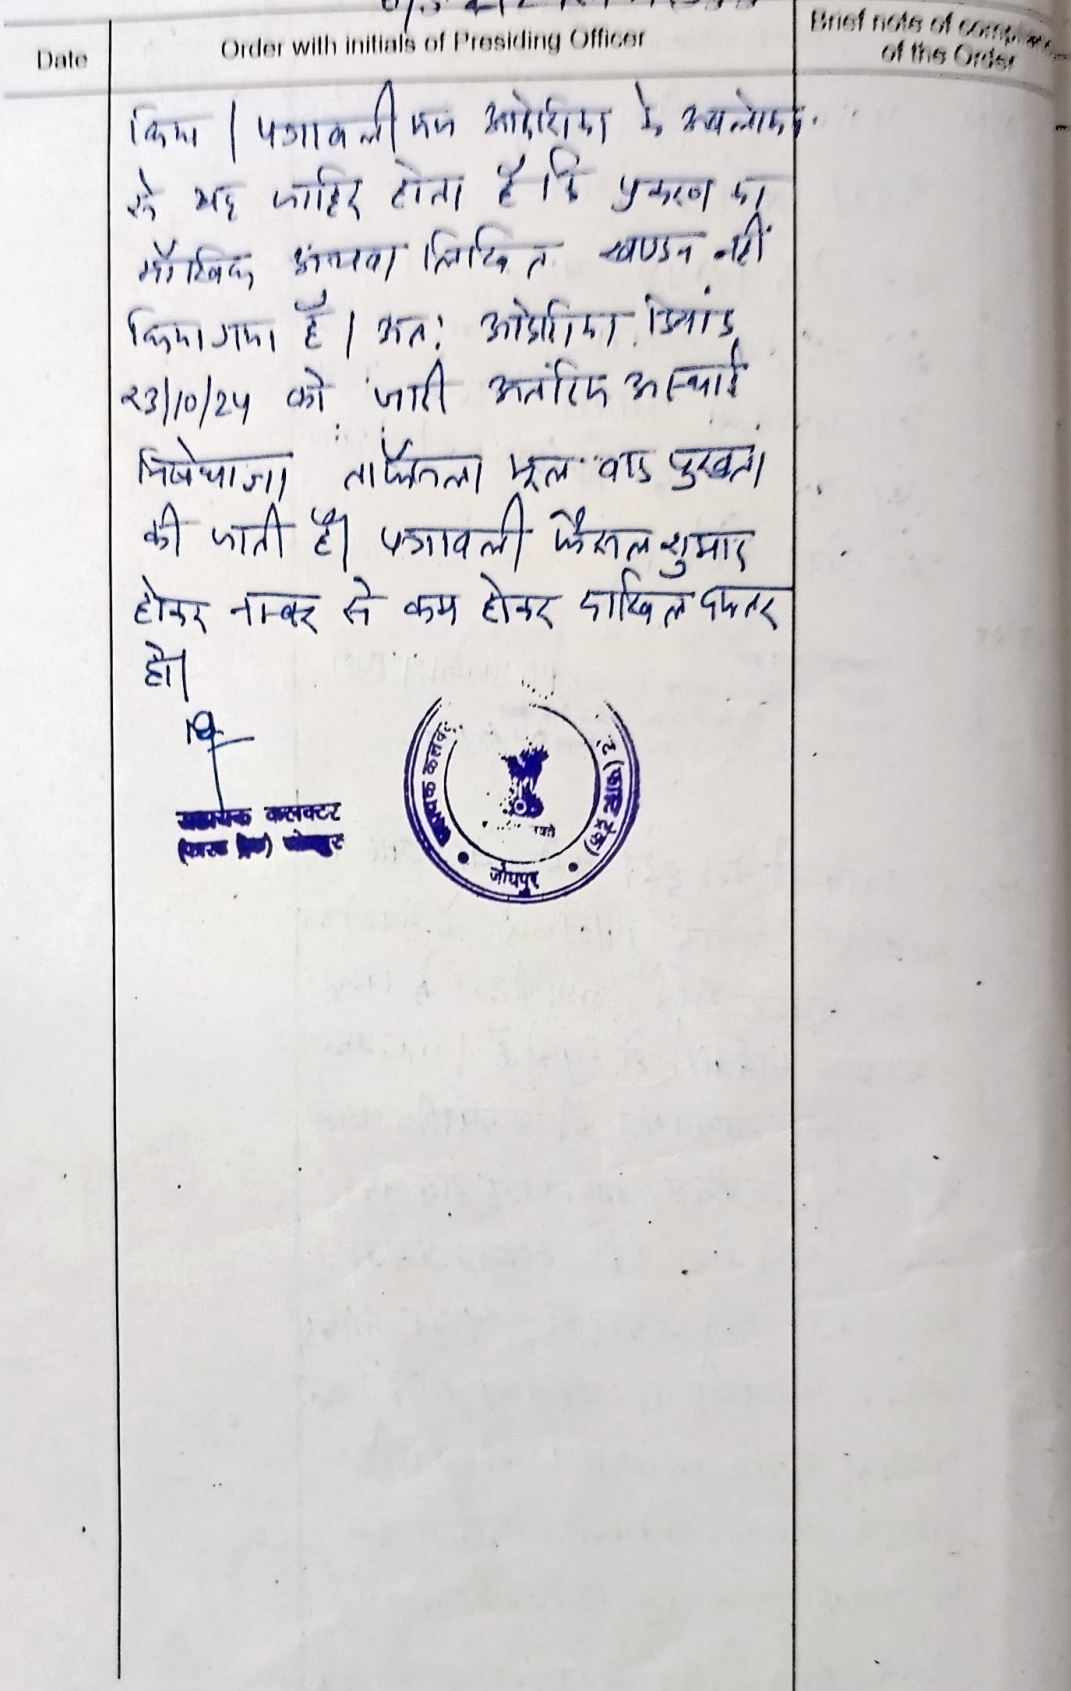 Date
Order with initials of Presiding Officer
Brief note of
of the Order
किया | पत्रावली मय आदेशिका के अवलोकन
से यह जाहिर होता है कि प्रकरण का
मौखिक अथवा लिखित खण्डन नहीं
किया गया है | अत: आदेशिका दिनांक
23/10/24 को जारी अन्तरिम अस्थाई
निषेधाज्ञा ताफैसला मूल वाद पुख्ता
की जाती है| पत्रावली फैसल शुमार
होकर नम्बर से कम होकर दाखिल दफ्तर
हो|
सहायक कलक्टर
(फास्ट ट्रेक) जोधपुर
सहायक कलक्टर
(फास्ट ट्रेक)
जोधपुर